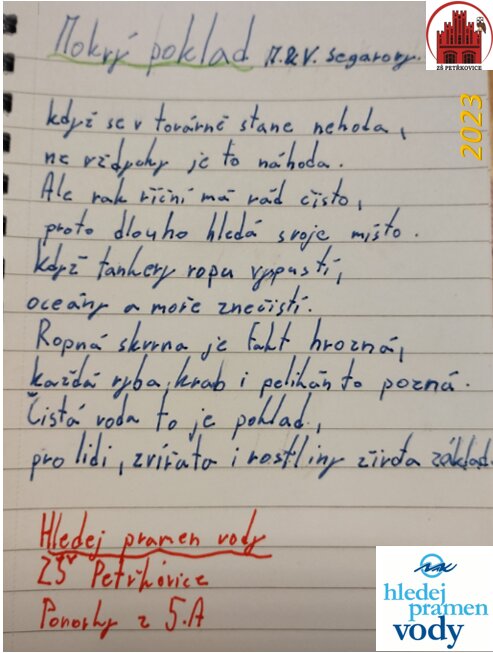 Mokrý poklad M.&V. Segarovy.
ZŠ PETŘKOVICE
2023
když se v továrně stane nehoda,
ne vždycky je to náhoda.
Ale rak říční má rád čisto,
proto dlouho hledá svoje místo.
Když tankery ropu vypustí,
oceány a moře znečistí.
Ropná skvrna je fakt hrozná,
každá ryba, krab i pelikán to pozná.
Čistá voda to je poklad,
pro lidi, zvířata i rostliny života základ.
Hledej pramen vody
ZŠ Petřkovice
Ponorky z 5.A
hledej
pramen
vody